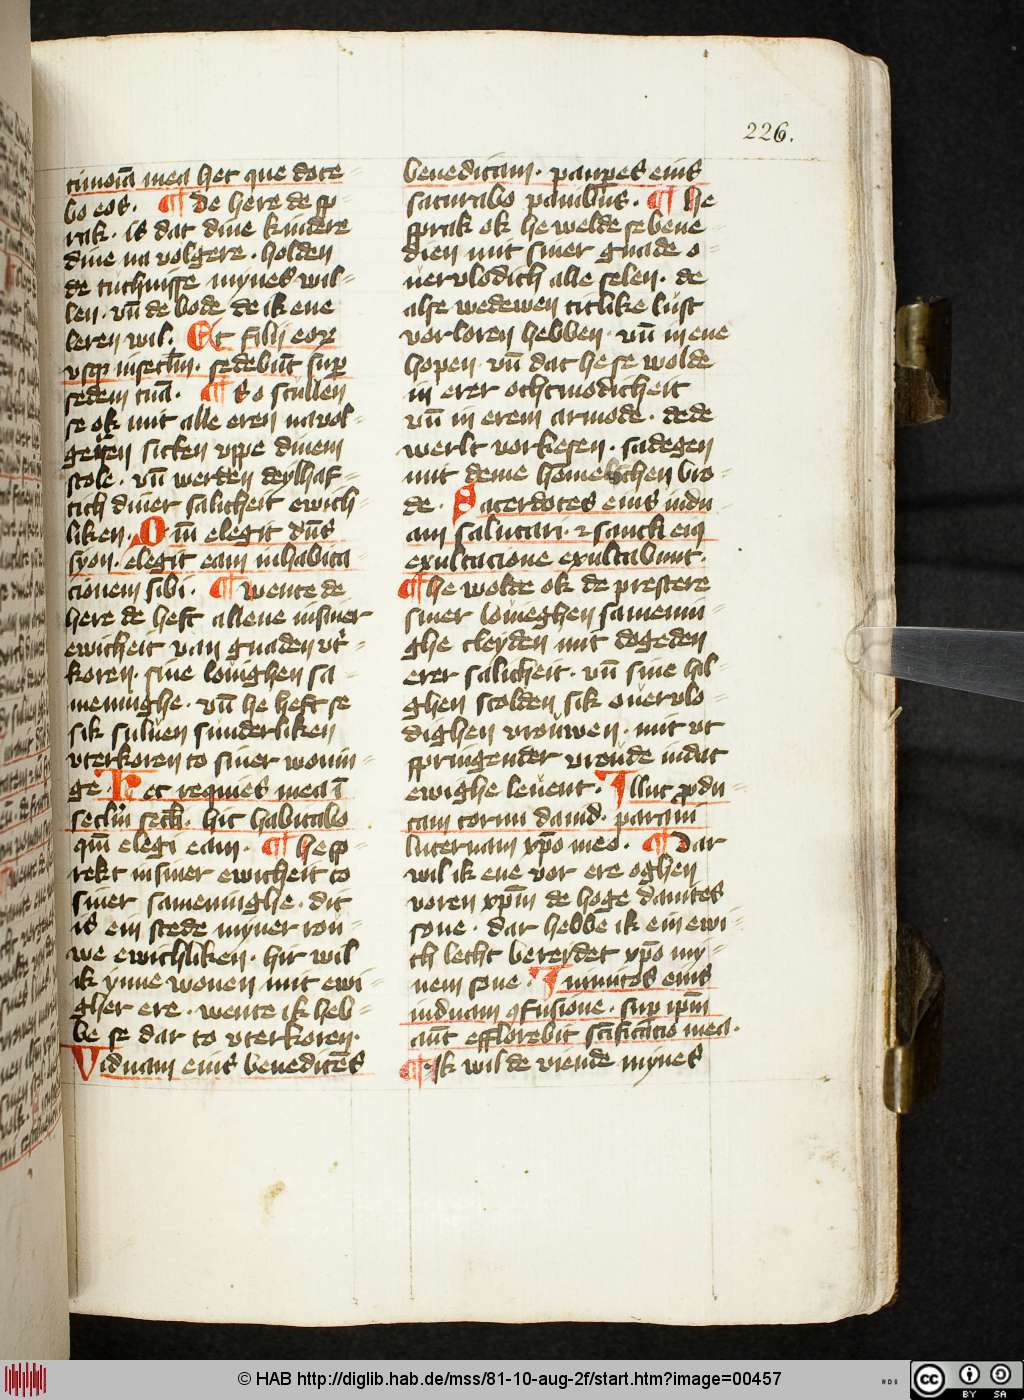 226.
timonia mea hec que doce-
bo eos. ¶ De here de sp-
rak. is dat dine kindere
dine na volgere. holden
de tuchnisse mynes wil-
len. vn̄ de bode de ik ene
leren wil. Et filij eorꝝ
vsqꝫ in seclm̄. sedebūt sup
sedem tuā. ¶ So scullen
se ok mit alle eren navol-
geren sitten vppe dinem
stole. vn̄ werden deylhaf-
tich diner salicheit ewich-
liken. Qm̄ elegit dn̄s
syon. elegit eam in habita-
cionem sibi. ¶ Wente de
here de heft allene in siner
ewicheit van gnaden vt-
koren. sine louighen sa-
meninghe. vn̄ he heft se
sik suluen sunderliken
vterkoren to siner wonin-
ge. Hec requies mea ī
seclm̄ secli. hic habitabo
qm̄ elegi eam. ¶ He sp-
rekt in siner ewicheit to
siner sameninghe. dit
is ein stede myner rou-
we ewichliken. hir wil
ik ynne wonen mit ewi-
gher ere. wente ik heb-
be se dar to vterkoren.
Viduam eius benedicēs
benedicam. paupes eius
saturabo panibus. ¶ He
sprak ok he welde se bene-
dien mit siner gnade o-
uervlodich alle selen. de
alse wedewen titlike lust
vorloren hebben. vn̄ in ene
hopen vn̄ dat he se wolde
in erer othmodicheit
vn̄ in erem armode. de de
werlt vorkesen. sadegen
mit deme hemelschen bro-
de. Sacerdotes eius indu
am salutari. et sancti eiꝰ
exultacione exultabunt.
¶ he wolde ok de prestere
siner louieghen samenin-
ghe cleyden mit dogeden
erer salicheit. vn̄ sine hil-
ghen scolden sik ouervlo-
dighen vrouwen. mit vt
springender vroude in dat
ewighe leuent. Illuc ꝓdu-
cam cornu dauid. paraui
lucernam xp̄o meo. ¶ Dar
wil ik ene vor ere oghen
voren xp̄m de hoge dauites
sone. dar hebbe ik ein ewi-
ch lecht bereydet xp̄o my-
nem sone. Inimicos eius
induam ꝯfusione. sup ip̄m
aūt efflorebit scificatio mea.
¶ Ik wil de viende mynes
© HAB http://diglib.hab.de/mss/81-10-aug-2f/start.htm?image=00457
HAB
cc BY SA